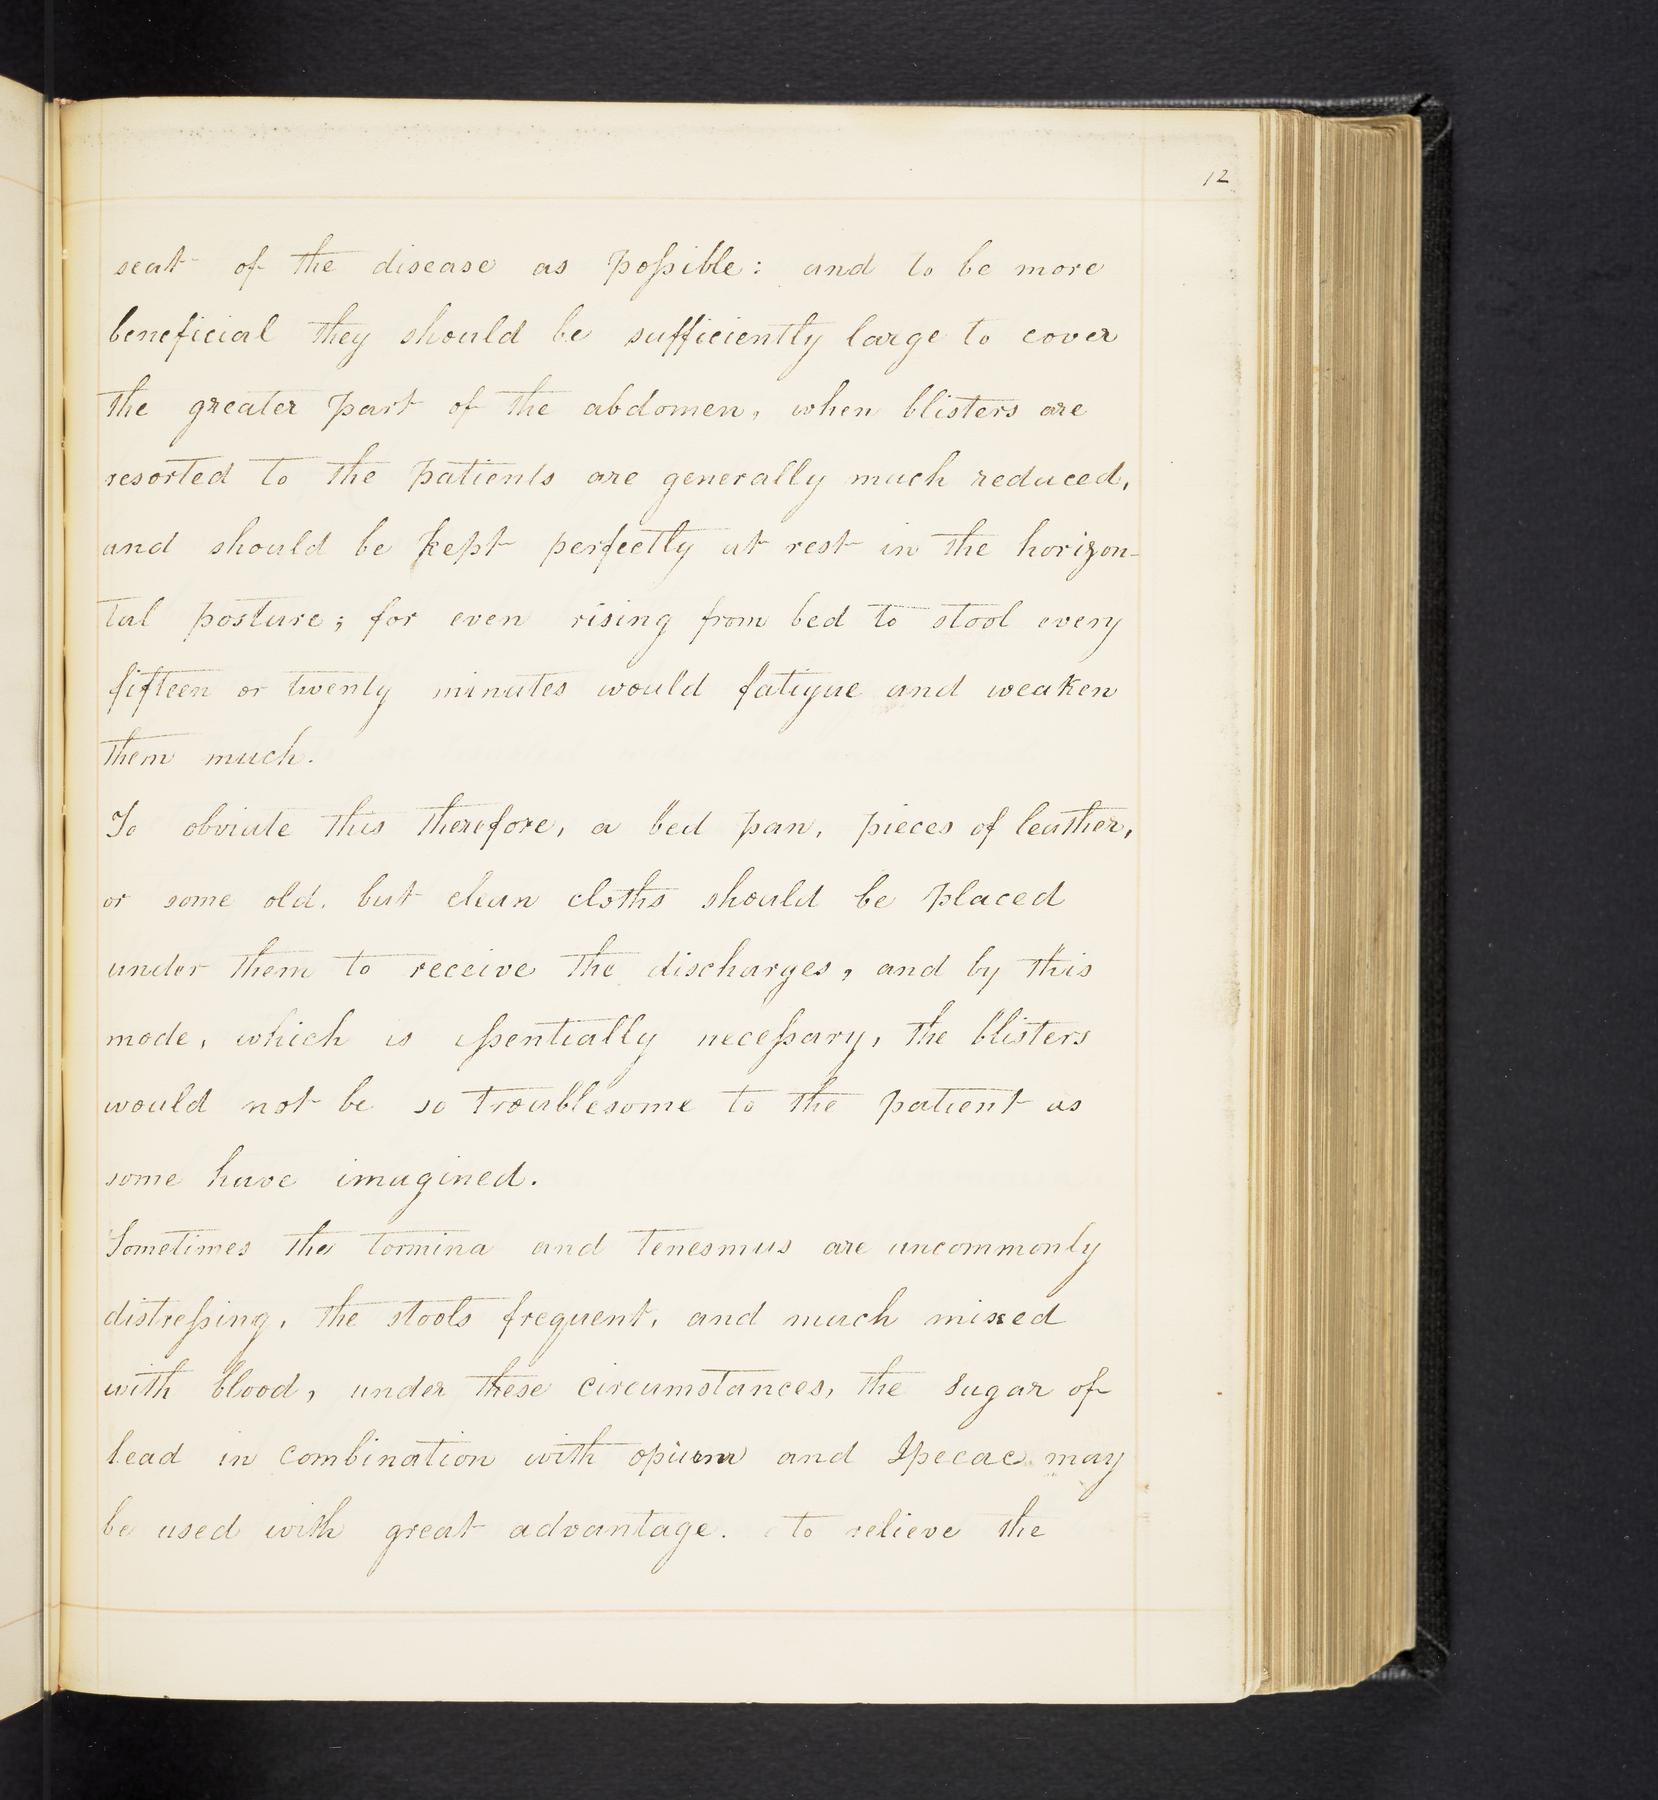 12
seat of the disease as poſsible: and to be more
beneficial they should be sufficiently large to cover
the greater part of the abdomen, when blisters are
resorted to the patients are generally much reduced,
and should be kept perfectly at rest in the horizon-
tal posture; for even rising from bed to stool every
fifteen or twenty minutes would fatigue and weaken
them much.
To obviate this therefore, a bed pan, pieces of leather,
or some old, but clean cloths should be placed
under them to receive the discharges, and by this
mode, which is eſsentially neceſsary, the blisters
would not be so troublesome to the patient as
some have imagined.
Sometimes the tormina and tenesmus are uncommonly
distreſsing, the stools frequent, and much mixed
with blood, under these circumstances, the sugar of
lead in combination with opium and Ipecac may
be used with great advantage. to relieve the